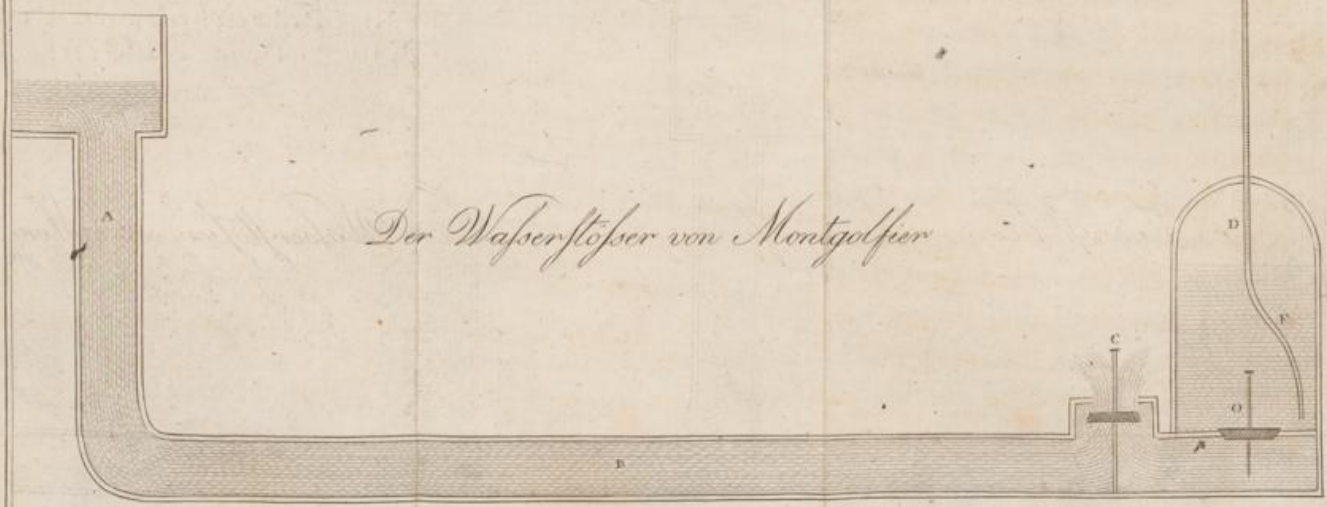 A
D
Der Waſserſtöſser von Montgolfier
F
C
O
B